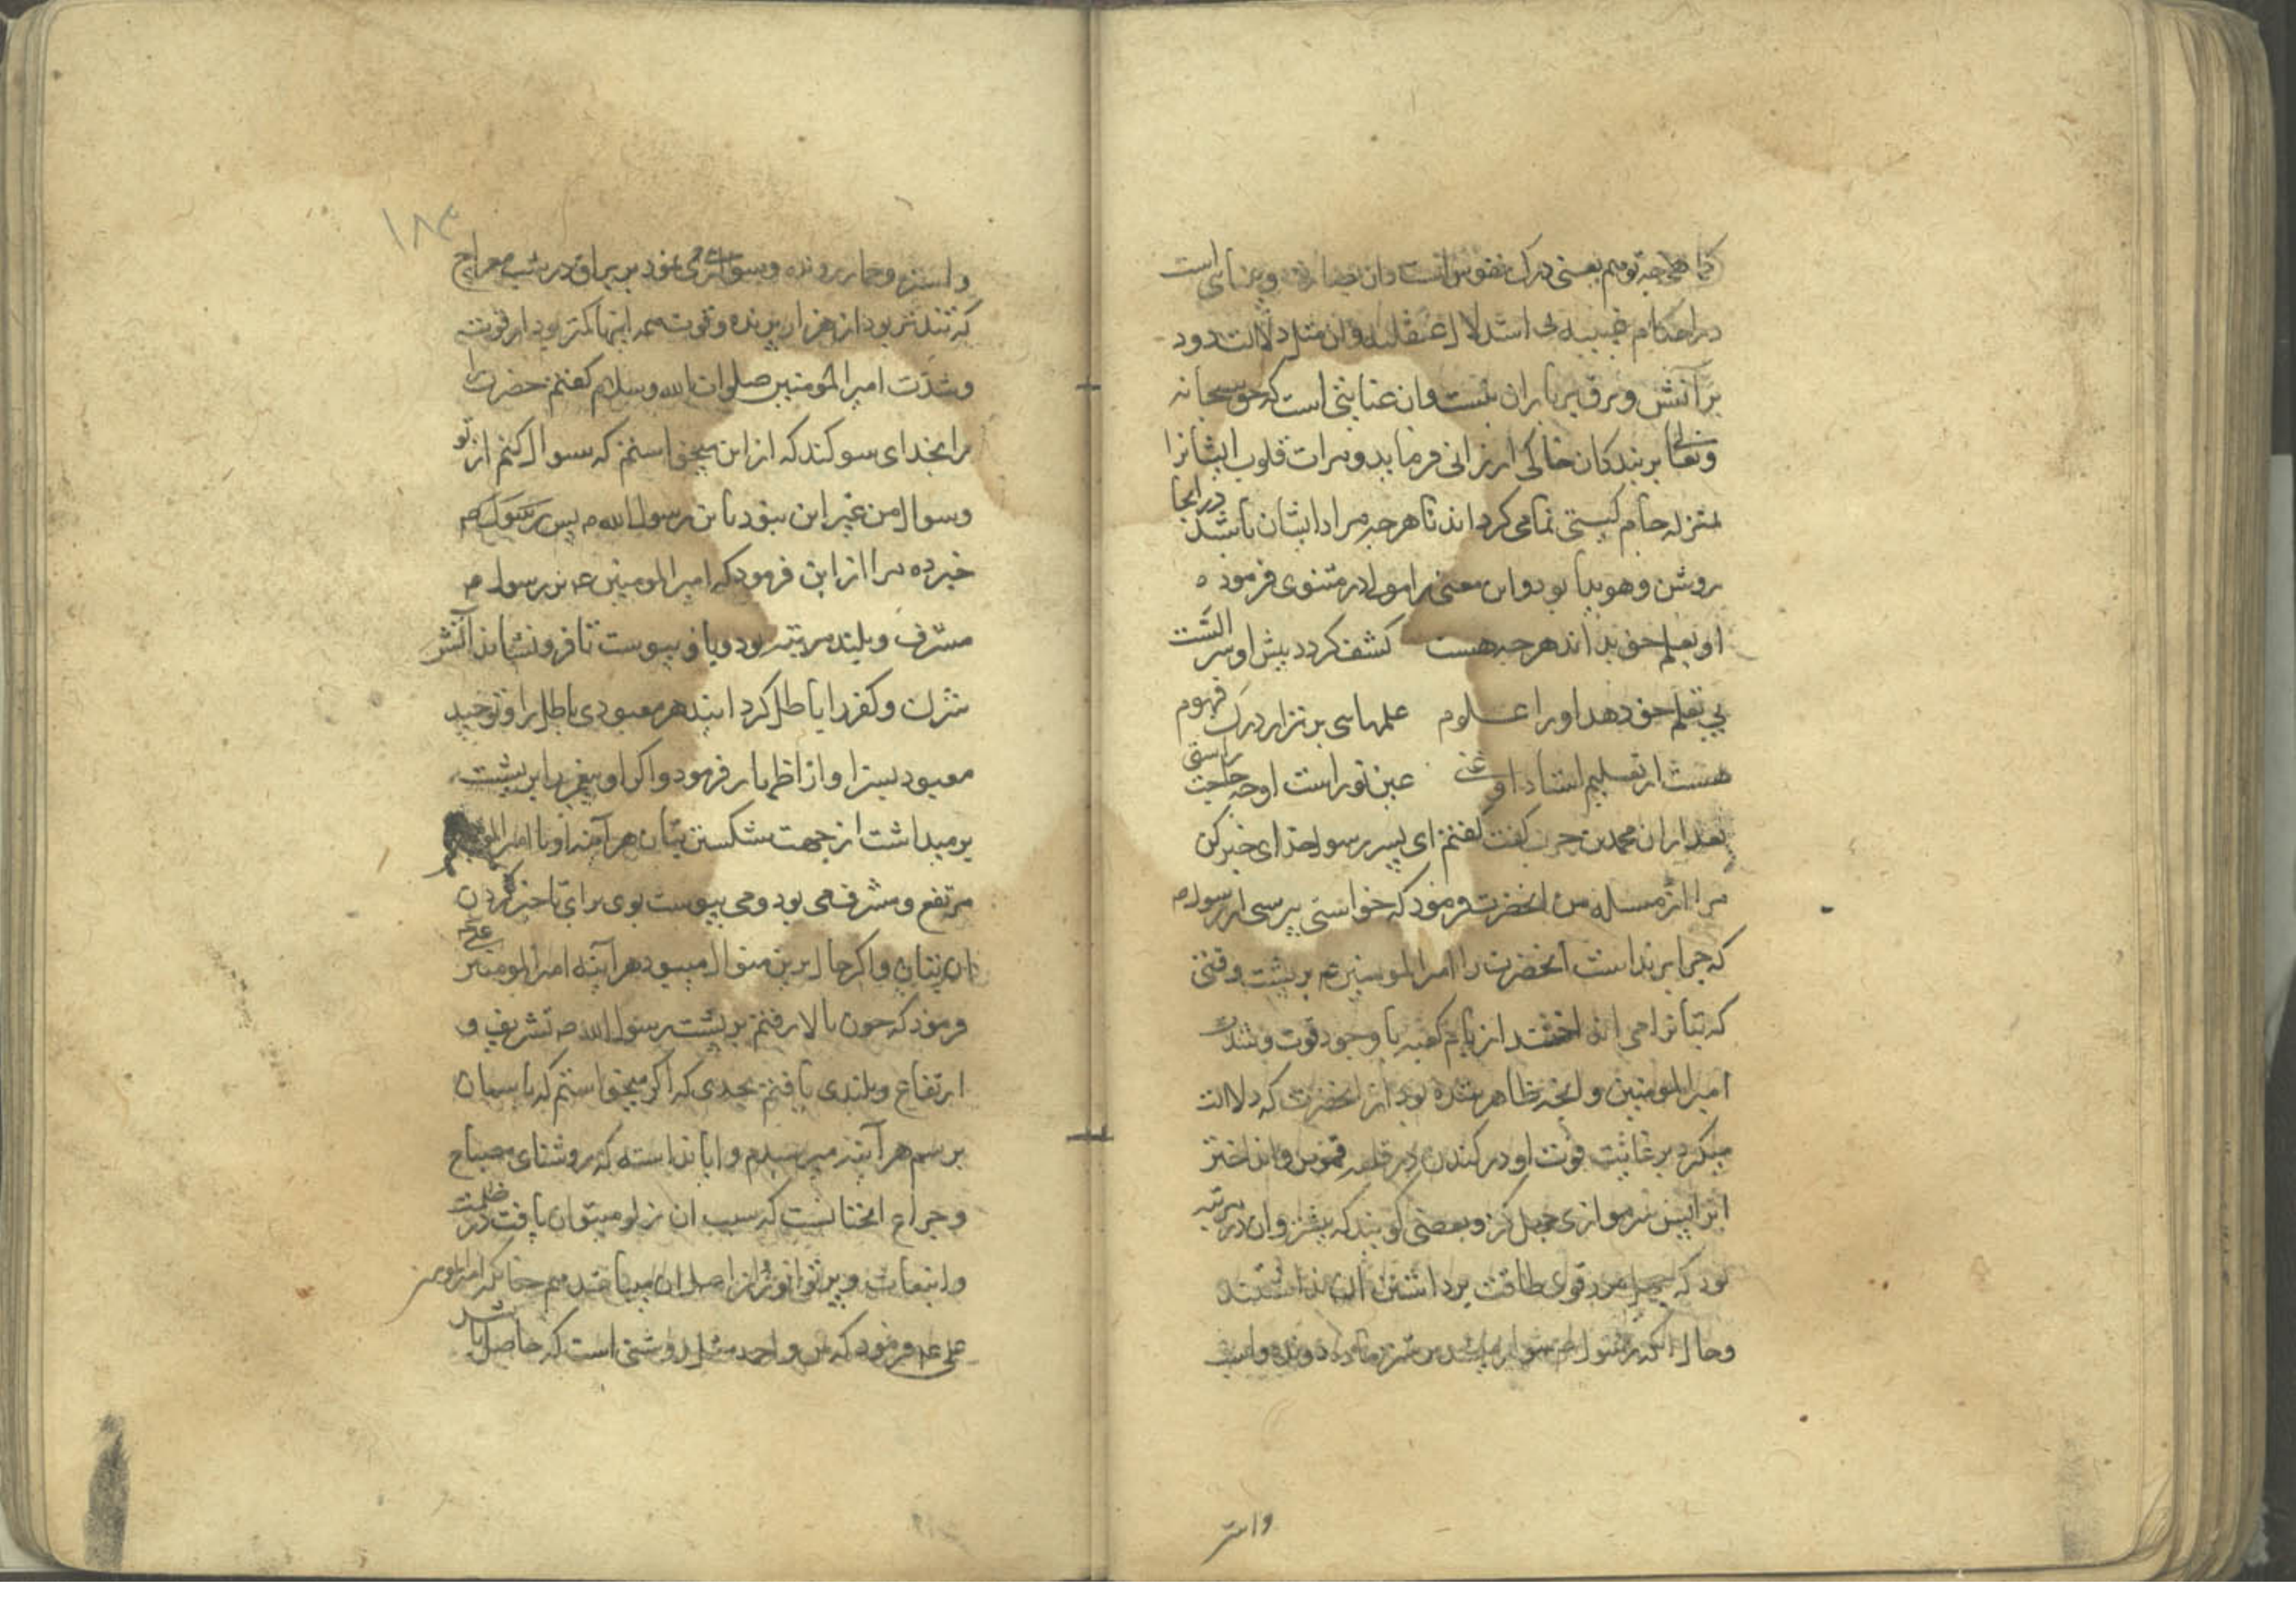 در احکام غیبیه بی استدلال عقلیه و ان مثل دلالت دود
بر آتش و برق بر باران نیست و ان عنایتی است که حق سبحانه
و تعالی بر بندکان خاکی ارزانی فرماید و مرات قلوب ایشانرا
بمنزله جام کیتی نمای کرداند تا هرچه مراد ایشان باشد در انجا
روشن و هویدا بود و این معنی را مولا در مثنوی فرموده
او بعلم حق بداند هرچه هست کشف کردد پیش او سر الست
بی تعلم حق دهد او را علوم علمهای برتر از درک فهوم
هست از تعلیم استاد او غنی عین نور است او چه حاجت راستی
بعد از ان محمد بن حرب کفت کفتم ای پسر رسول خدای خبر کن
مرا از مسله من انحضرت فرمود که خواستی بپرسی از رسول ص
که چرا برنداشت انحضرت را امیرالمومنین ع بر پشت وقتی
که بتانرا می انداختند از بام کعبه با وجود قوت و شدت
امیرالمومنین و انچه ظاهر شده بود از انحضرت که دلالت
میکرد بر غایت قوت او در کندن در قلعه قموص و انداختن
بود که چهل مرد قوی طاقت برداشتن ان نداشتند
و حال انکه رسول ص سوار میشد بر شتر ماده دونده و اسب
واستر
۱۸۳
و استر و حمار رونده و سواری می نمود بر براق در شب معراج
که تندتر بود از هزار پرنده و قوت همه اینها کمتر بود از قوت
و شدت امیرالمومنین صلوات الله و سلام کفتم حضرت را
مرا بخدای سوکند که از این میخواستم که سوال کنم از تو
و سوال من غیر این نبود یا بن رسول الله ص پس
خبر ده مرا از این فرمود که امیرالمومنین ع بر رسول ص
مشرف و بلند مرتبه بود و باو پیوست تا فرونشاند آتش
شرک و کفر را باطل کرداند هر معبودی باطل را و توحید
معبود بسزا و از اظهار فرمود و اکر او پیغمبر را بر پشت
برمیداشت از جهت شکستن بتان هر آینه او با
مرتفع و مشرف می بود و می پیوست بوی برای ناچیز کردن
ان بتان و اکر حال برین منوال میبود هر آینه امیرالمومنین علی ع
فرمود که چون بالا رفتم بر پشت رسول الله ص تشریف و
ارتفاع و بلندی یافتم بحدی که اکر میخواستم که باسمان
برسم هر آینه میرسیدم و ایا ندانسته که روشنای مصباح
و چراغ انچنانست که سبب ان نور میتوان یافت در ظلمت
علی ع فرمود که من و احمد مثل روشنی است که حاصل باشد